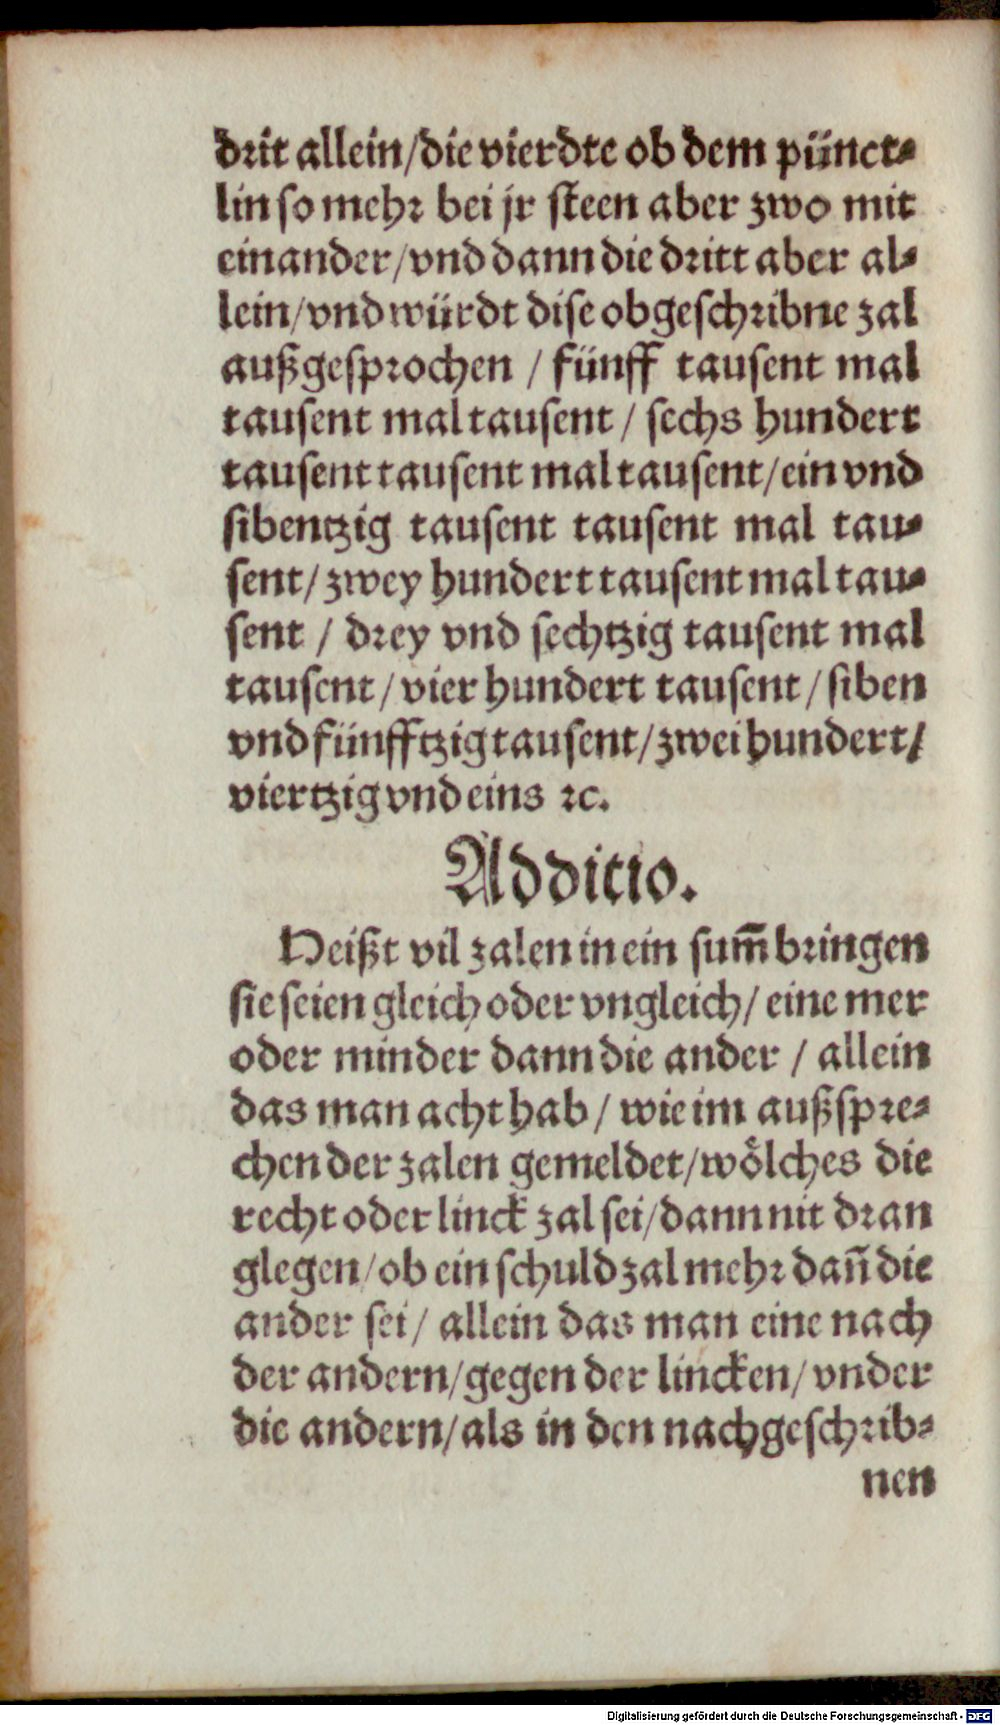 drit allein/die vierdte ob dem pünct⸗
lin so mehr bei jr steen aber zwo mit
einander/vnd dann die dritt aber al⸗
lein/vnd würdt dise obgeschribne zal
außgesprochen / fünff tausent mal
tausent mal tausent / sechs hundert
tausent tausent mal tausent/ein vnd
sibentzig tausent tausent mal tau⸗
sent/ zwey hundert tausent mal tau⸗
sent / drey vnd sechtzig tausent mal
tausent/vier hundert tausent/siben
vnd fünfftzig tausent/zwei hundert/
viertzig vnd eins ꝛc.
Additio.
Heißt vil zalen in ein sum̃ bringen
sie seien gleich oder vngleich/ eine mer
oder minder dann die ander / allein
das man acht hab/ wie im außspre⸗
chen der zalen gemeldet/wölches die
recht oder linck zal sei/dann nit dran
glegen/ob ein schuld zal mehr dañ die
ander sei/ allein das man eine nach
der andern/gegen der lincken/vnder
die andern/als in den nachgeschrib⸗
nen
Digitalisierung gefördert durch die Deutsche Forschungsgemeinschaft - DFG